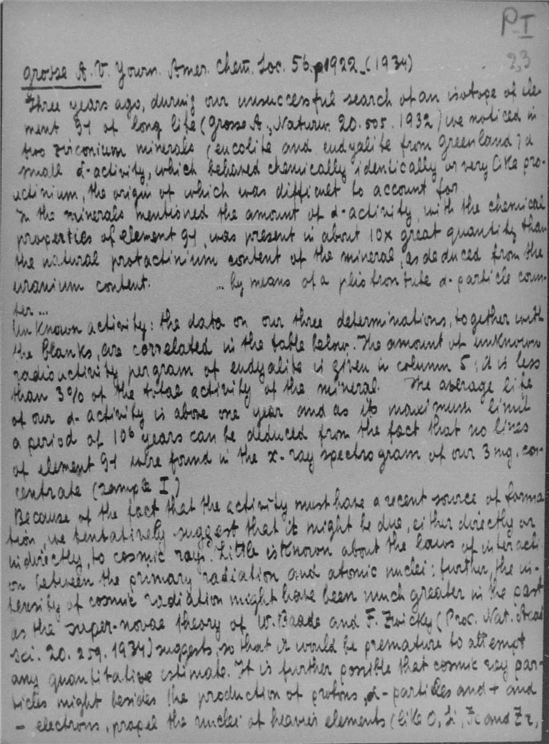 P I
23
Grosse A. V. Journ. Amer. Chem. Soc. 56, p 1922 (1934)
Three years ago, during our unsuccessful search of an isotope of ele-
ment 91 of long life (Grosse A., Naturw. 20. 505. 1932) we noticed in
two zirconium minerals (eucolite and eudyalite from Greenland) a
small α-activity, which behaved chemically identically or very like pro-
actinium, the origin of which was difficult to account for
In the minerals mentioned the amount of α-activity, with the chemical
properties of element 91, was present in about 10x great quantity than
the natural protactinium content of the mineral, as deduced from the
uranium content. ... by means of a pliotron tube α-particle coun-
ter...
Unknown activity: the data on our three determinations, together with
the blanks, are correlated in the table below. The amount of unknown
radioactivity per gram of eudyalite is given in column 5; it is less
than 3% of the total activity of the mineral. The average life
of our α-activity is above one year and as its maximum limit
a period of 10⁶ years can be deduced from the fact that no lines
of element 91 were found in the x-ray spectrogram of our 3 mg. con-
centrate (sample I)
Because of the fact that the activity must have a recent source of forma-
tion, we tentatively suggest that it might be due, either directly or
indirectly, to cosmic rays. Little is known about the laws of interacti-
on between the primary radiation and atomic nuclei; further, the in-
tensity of cosmic radiation might have been much greater in the past
as the super-novae theory of W. Baade and F. Zwicky (Proc. Nat. Acad
Sci. 20. 259. 1934) suggests, so that it would be premature to attempt
any quantitative estimate. It is further possible that cosmic ray par-
ticles might besides the production of protons, α-particles and + and
- electrons, propel the nuclei of heavier elements (like O, Si, Fe and Zr,